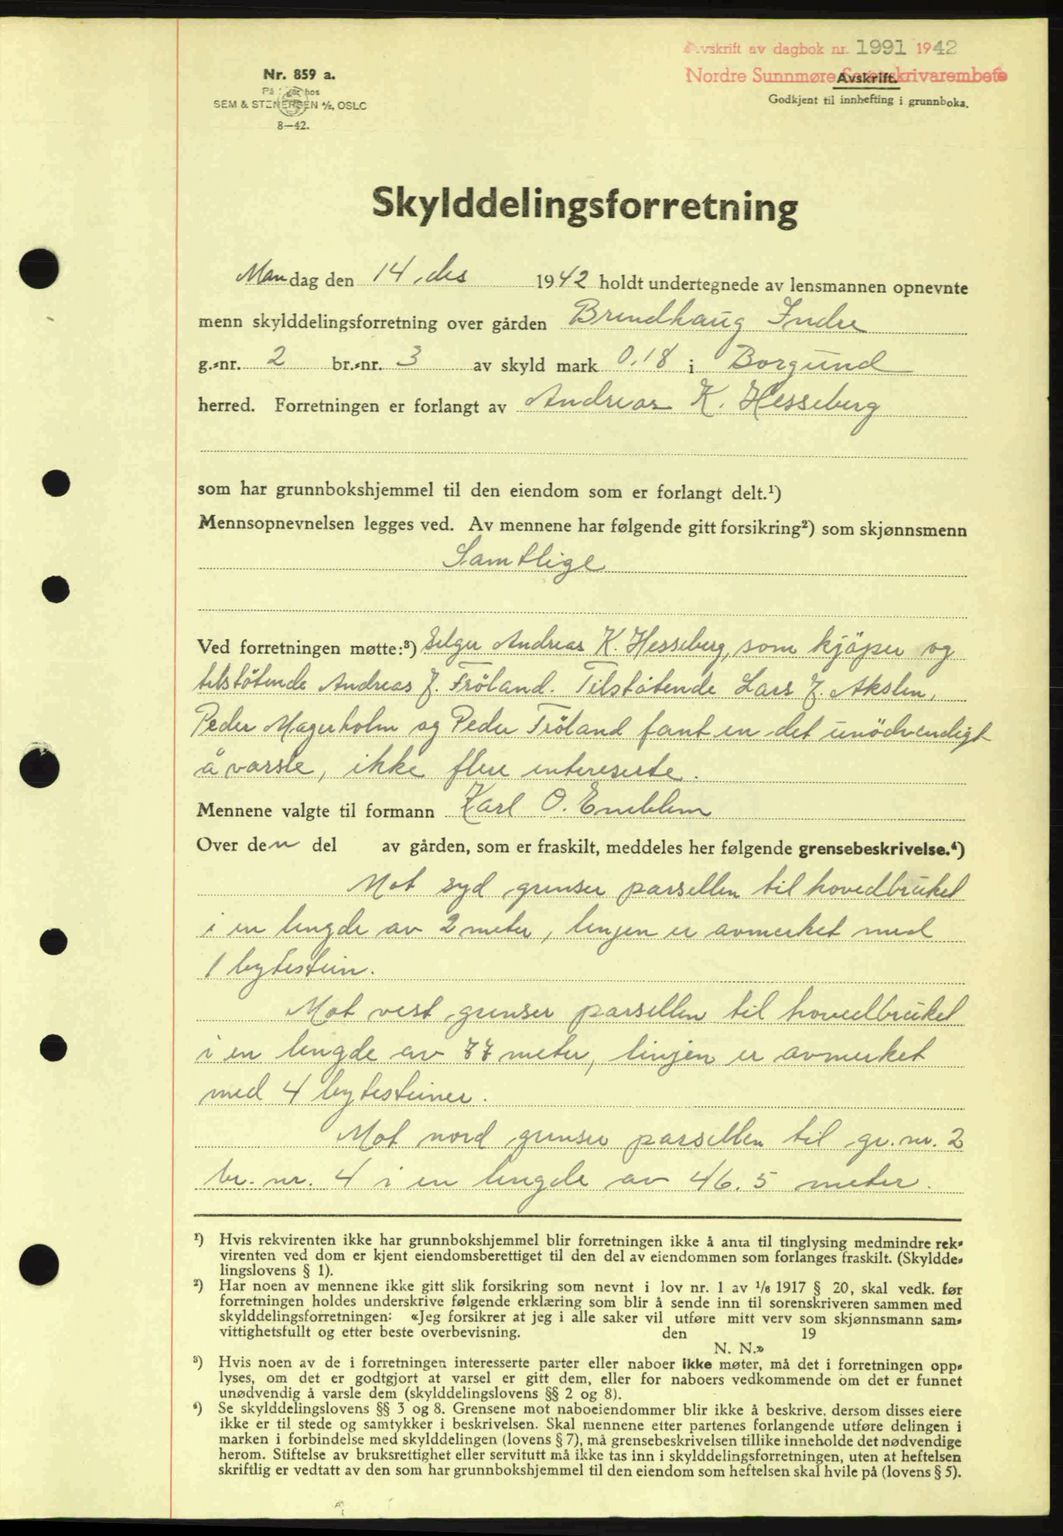 Avskrift av dagbok nr. 1991 1942
Nordre Sunnmøre Sorenskrivarembete
Avskrift.
Godkjent til innhefting i grunnboka.
Nr. 859 a.
SEM & STENERSEN A/S, OSLO
8—42.
Skylddelingsforretning
Mandag den 14. des 1942 holdt undertegnede av lensmannen opnevnte
menn skylddelingsforretning over gården Brendhaug Indre
g.-nr. 2 br.-nr. 3 av skyld mark 0.18 i Borgund
herred. Forretningen er forlangt av Andreas K. Hesseberg
som har grunnbokshjemmel til den eiendom som er forlangt delt.¹)
Mennsopnevnelsen legges ved. Av mennene har følgende gitt forsikring²) som skjønnsmenn
Samtlige
Ved forretningen møtte:³) Selger Andreas K. Hesseberg, som kjöper og
tilstötende Andreas J. Fröland. Tilstötende Lars J. Akslen,
Peder Magerholm og Peder Fröland fant en det unödvendigt
å varsle, ikke flere intereserte.
Mennene valgte til formann Karl O. Emblem
Over den del av gården, som er fraskilt, meddeles her følgende grensebeskrivelse.⁴)
Mot syd grenser parsellen til hovedbruket
i en lengde av 2 meter, linjen er avmerket med
1 bytestein.
Mot vest grenser parsellen til hovedbruket
i en lengde av 77 meter, linjen er avmerket
med 4 bytesteiner.
Mot nord grenser parsellen til gr. nr. 2
br. nr. 4 i en lengde av 46.5 meter.
¹) Hvis rekvirenten ikke har grunnbokshjemmel blir forretningen ikke å anta til tinglysing medmindre rek-
virenten ved dom er kjent eiendomsberettiget til den del av eiendommen som forlanges fraskilt. (Skyldde-
lingslovens § 1).
²) Har noen av mennene ikke gitt slik forsikring som nevnt i lov nr. 1 av 1/6 1917 § 20, skal vedk. før
forretningen holdes underskrive følgende erklæring som blir å sende inn til sorenskriveren sammen med
skylddelingsforretningen: «Jeg forsikrer at jeg i alle saker vil utføre mitt verv som skjønnsmann sam-
vittighetsfullt og etter beste overbevisning. den 19
N. N.»
³) Hvis noen av de i forretningen interesserte parter eller naboer ikke møter, må det i forretningen opp-
lyses, om det er godtgjort at varsel er gitt dem, eller for naboers vedkommende om det er funnet
unødvendig å varsle dem (skylddelingslovens §§ 2 og 8).
⁴) Se skylddelingslovens §§ 3 og 8. Grensene mot naboeiendommer blir ikke å beskrive, dersom disses eiere
ikke er til stede og samtykker i beskrivelsen. Skal mennene etter partenes forlangende utføre delingen i
marken i forbindelse med skylddelingen (lovens § 7), må grensebeskrivelsen tillike inneholde det nødvendige
herom. Stiftelse av bruksrettighet eller servitutt må ikke tas inn i skylddelingsforretningen, uten at heftelsen
skriftlig er vedtatt av den som har grunnbokshjemmel til den eiendom som heftelsen skal hvile på (lovens § 5).